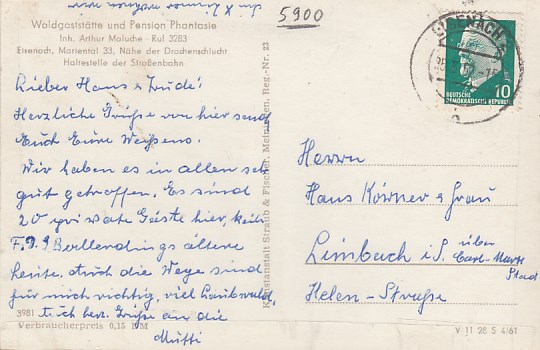 5900
Waldgaststätte und Pension Phantasie
Inh. Arthur Maluche - Ruf 3283
Eisenach, Mariental 33, Nähe der Drachenschlucht
Haltestelle der Straßenbahn
Lieber Hans & Trude!
Herzliche Grüße von hier send
Euch Eure Weißens.
Wir haben es in allen sehr
gut getroffen. Es sind
20 private Gäste hier, kein
F.D.G. ältere
Leute. Auch die Wege sind
für mich richtig, viel Laubwald,
u. ich herz. Grüße an die
Mutti
3981
Verbraucherpreis 0,15 DM
Kunstanstalt Straub & Fischer, Meiningen, Reg.-Nr. 23
EISENACH
DEUTSCHE
DEMOKRATISCHE REPUBLIK
10
Herrn
Hans Körner & Frau
Limbach i/S. über
Karl-Marx
Stad
Helen-Straße
V 11 28 S 4/61